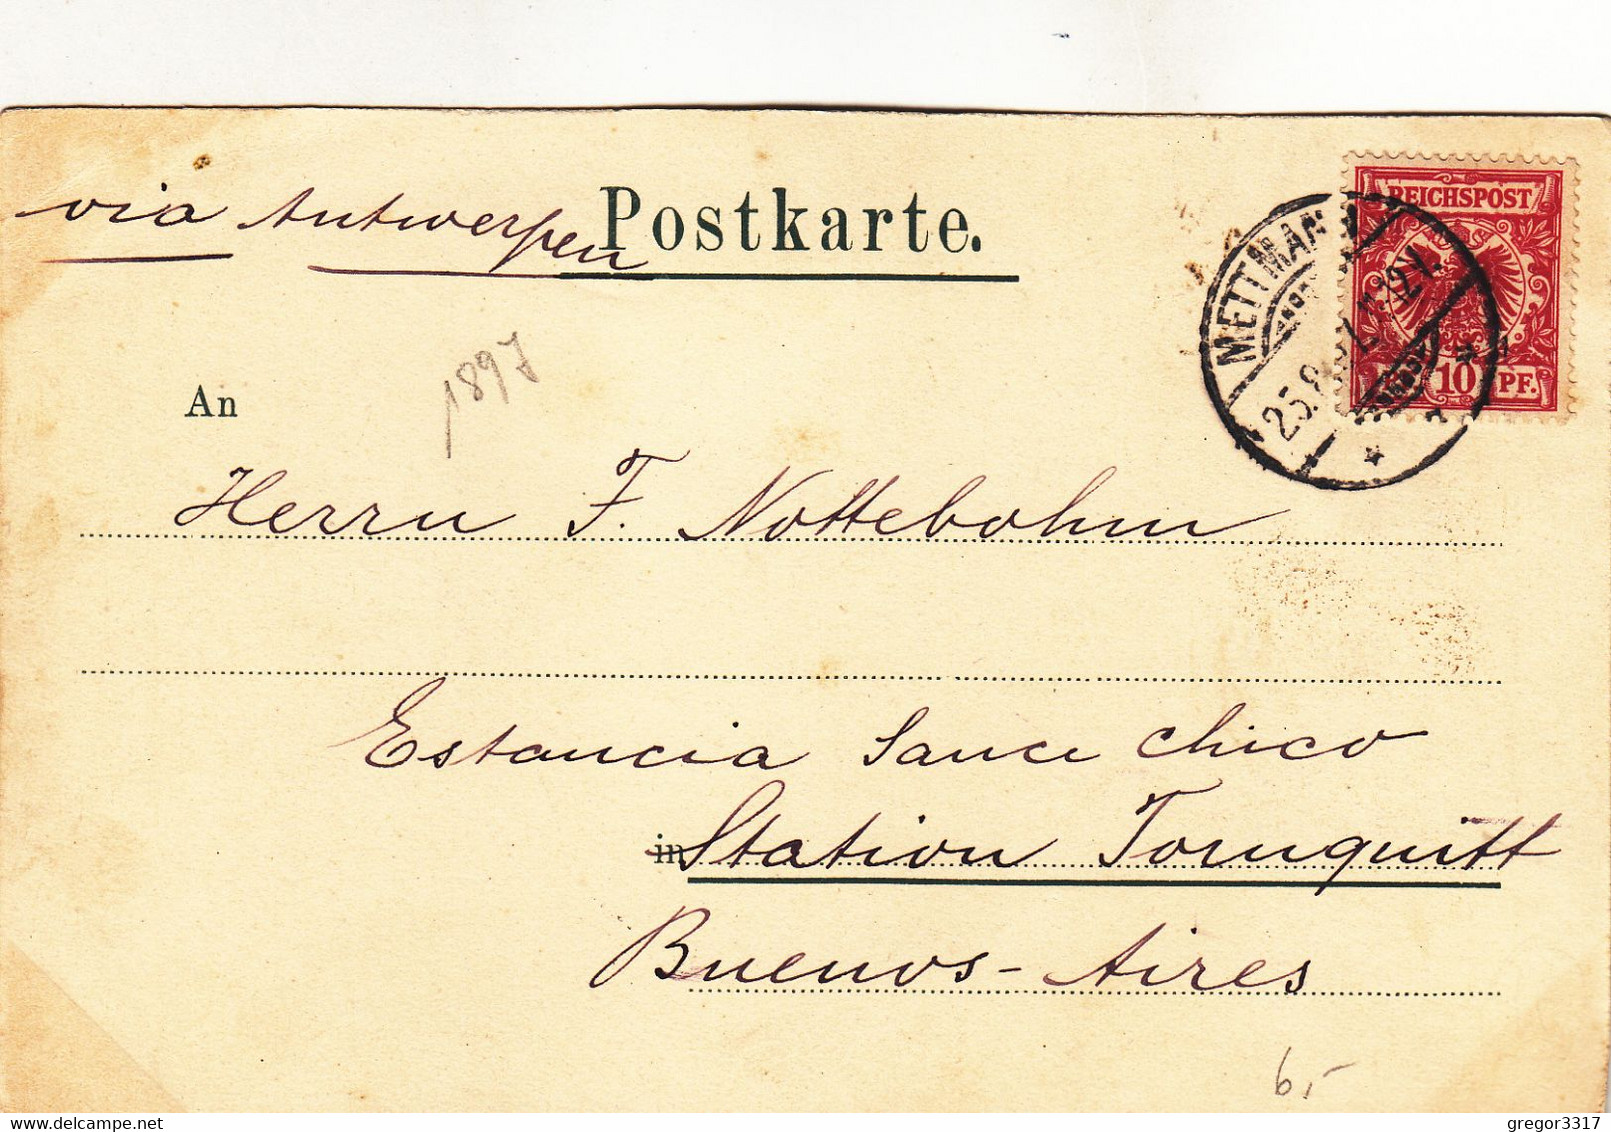 via Antwerpen
Postkarte.
REICHSPOST
METTMANN
10 PF.
1897
An
Herrn F. Nottebohm
Estancia Sauce Chico
in Station Tornquitt
Buenos-Aires
6,-
gregor3317